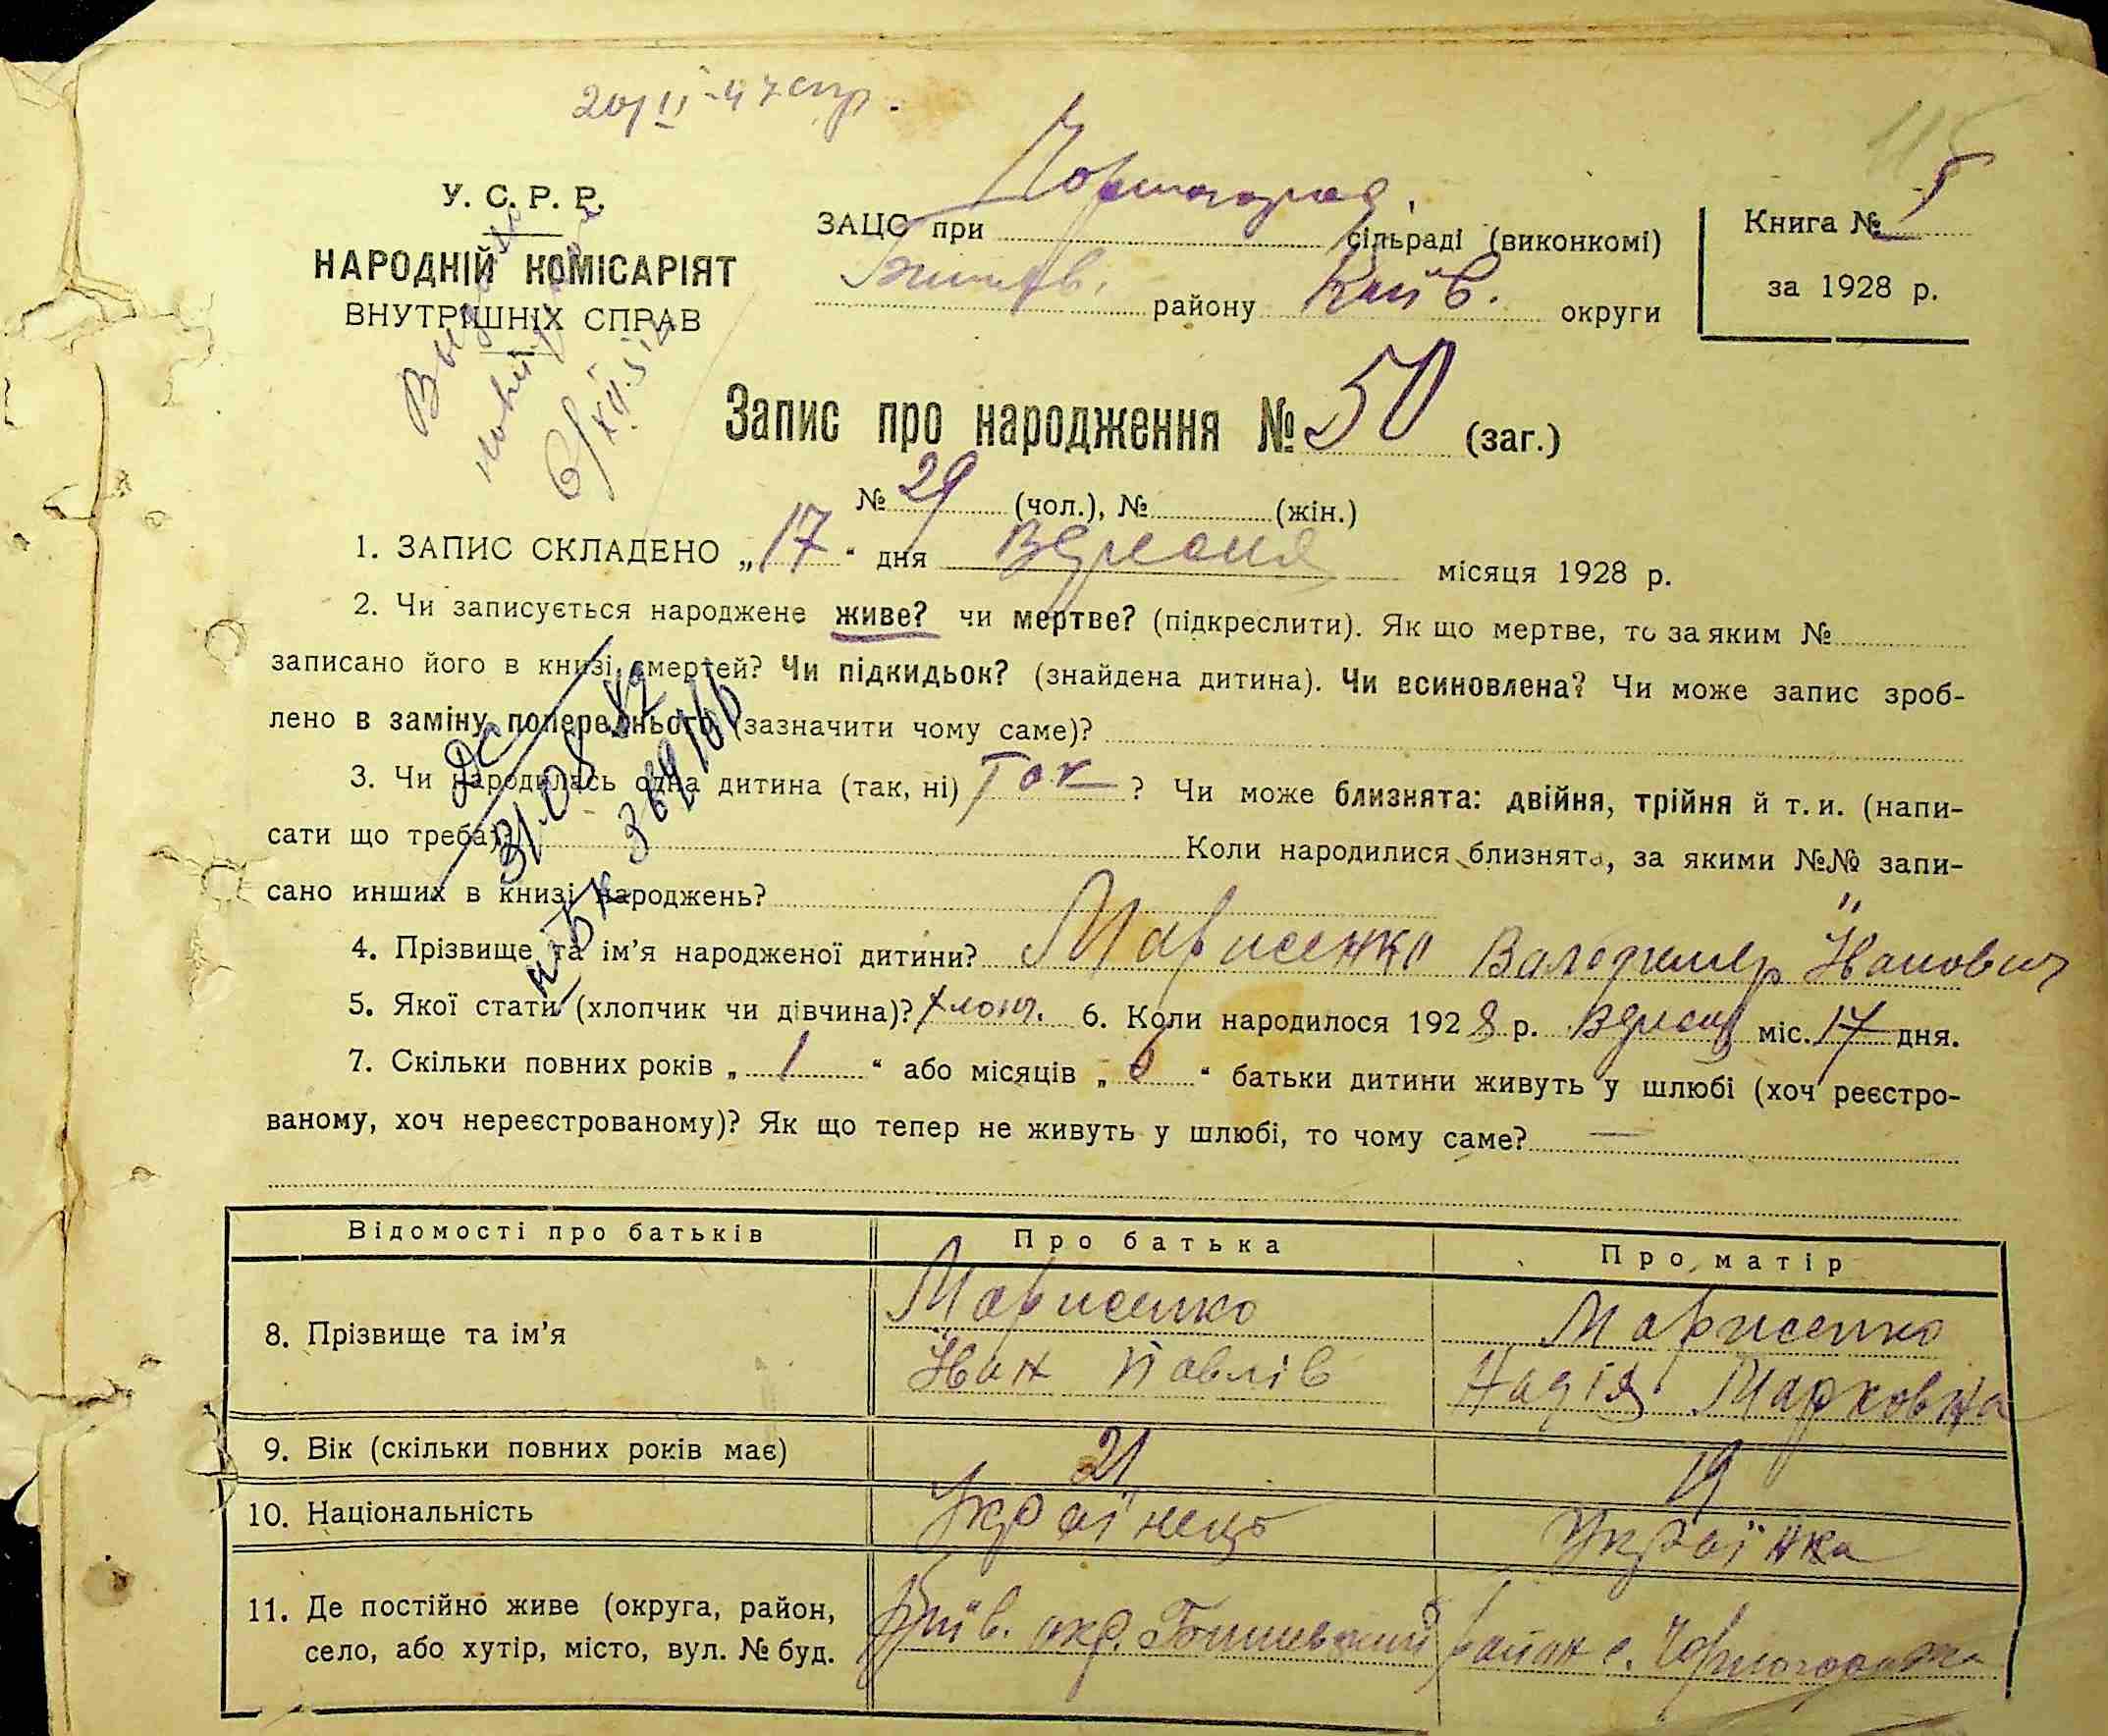 У. С. Р. Р.
НАРОДНІЙ КОМІСАРІЯТ
ВНУТРІШНІХ СПРАВ
ЗАЦС при Чорногород. сільраді (виконкомі)
району Київ. округи
Книга №
за 1928 р.
Запис про народження № 50 (заг.)
№ 29 (чол.), № (жін.)
1. ЗАПИС СКЛАДЕНО „17“ дня Вересня місяця 1928 р.
2. Чи записується народжене живе? чи мертве? (підкреслити). Як що мертве, то за яким №
записано його в книзі смертей? Чи підкидьок? (знайдена дитина). Чи всиновлена? Чи може запис зроб-
лено в заміну попереднього (зазначити чому саме)?
3. Чи народилась одна дитина (так, ні) Так ? Чи може близнята: двійня, трійня й т. и. (напи-
сати що треба)? Коли народилися близнята, за якими №№ запи-
сано инших в книзі народжень?
4. Прізвище та ім’я народженої дитини? Марисенко Володимер Іванович
5. Якої стати (хлопчик чи дівчина)? хлопч. 6. Коли народилося 1928 р. Вересня міс. 17 дня.
7. Скільки повних років „1“ або місяців „ “ батьки дитини живуть у шлюбі (хоч реєстро-
ваному, хоч нереєстрованому)? Як що тепер не живуть у шлюбі, то чому саме? —
Відомості про батьків Про батька Про матір
8. Прізвище та ім’я Марисенко Марисенко
Іван Павлів Надія Марковна
9. Вік (скільки повних років має) 21 19
10. Національність Українець Українка
11. Де постійно живе (округа, район,
село, або хутір, місто, вул. № буд.
Київ. окр. район с. Чорногородка